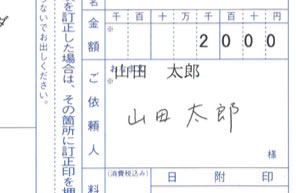 ないでお出しください。
を訂正した場合は、その箇所に訂正印を押
名
金額
千百十万千百十円
※
2000
ご依頼人
山田 太郎
山田太郎
様
料
(消費税込み)
日附印
※